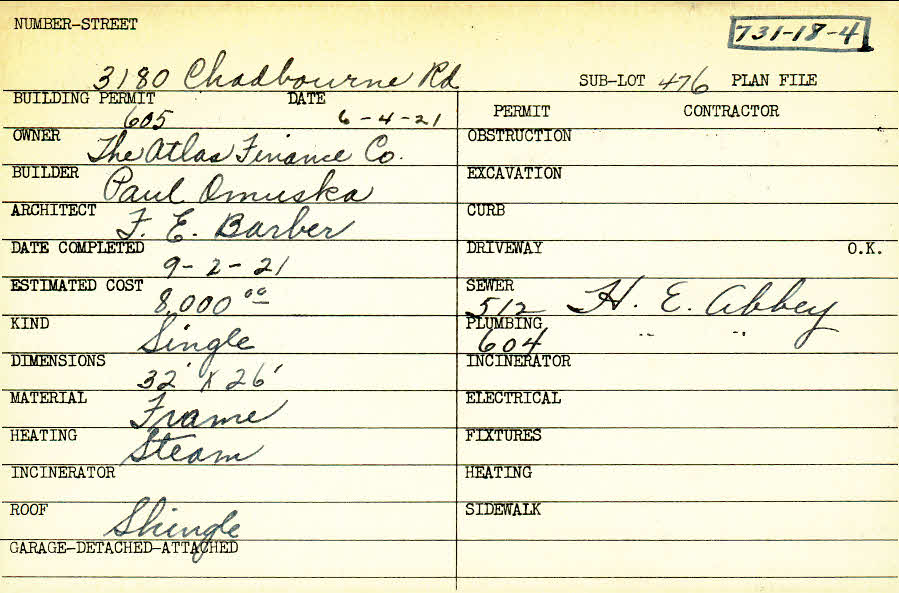 NUMBER-STREET
731-18-4
3180 Chadbourne Rd SUB-LOT 476 PLAN FILE
BUILDING PERMIT DATE
605 6-4-21
OWNER The Atlas Finance Co.
BUILDER Paul Omuska
ARCHITECT F. E. Barber
DATE COMPLETED
9-2-21
ESTIMATED COST
8,000 00
KIND Single
DIMENSIONS
32' X 26'
MATERIAL Frame
HEATING Steam
INCINERATOR
ROOF Shingle
GARAGE-DETACHED-ATTACHED
PERMIT CONTRACTOR
OBSTRUCTION
EXCAVATION
CURB
DRIVEWAY O.K.
SEWER
512 H. E. Abbey
PLUMBING
604 " "
INCINERATOR
ELECTRICAL
FIXTURES
HEATING
SIDEWALK